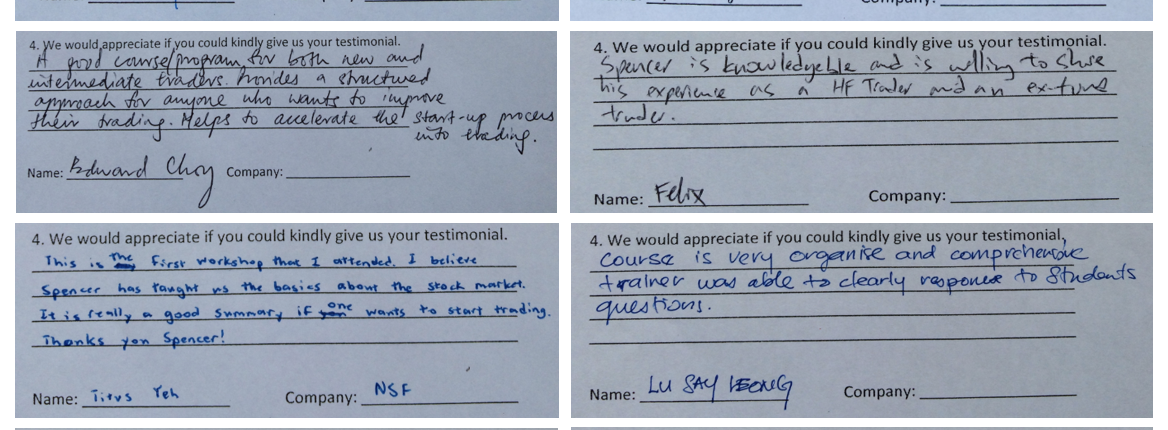 4. We would appreciate if you could kindly give us your testimonial.
A good course/program for both new and
intermediate traders. Provides a structured
approach for anyone who wants to improve
their trading. Helps to accelerate the start-up process
into trading.
Name: Edward Choy Company:
4. We would appreciate if you could kindly give us your testimonial.
Spencer is knowledgeable and is willing to share
his experience as a HF Trader and an ex-fund
trader.
Name: Felix Company:
4. We would appreciate if you could kindly give us your testimonial.
This is the first workshop that I attended. I believe
Spencer has taught us the basics about the stock market.
It is really a good summary if one wants to start trading.
Thanks you Spencer!
Name: Titus Yeh Company: NSF
4. We would appreciate if you could kindly give us your testimonial.
Course is very organise and comprehensive
trainer was able to clearly response to students
questions.
Name: LU SAY LEONG Company: